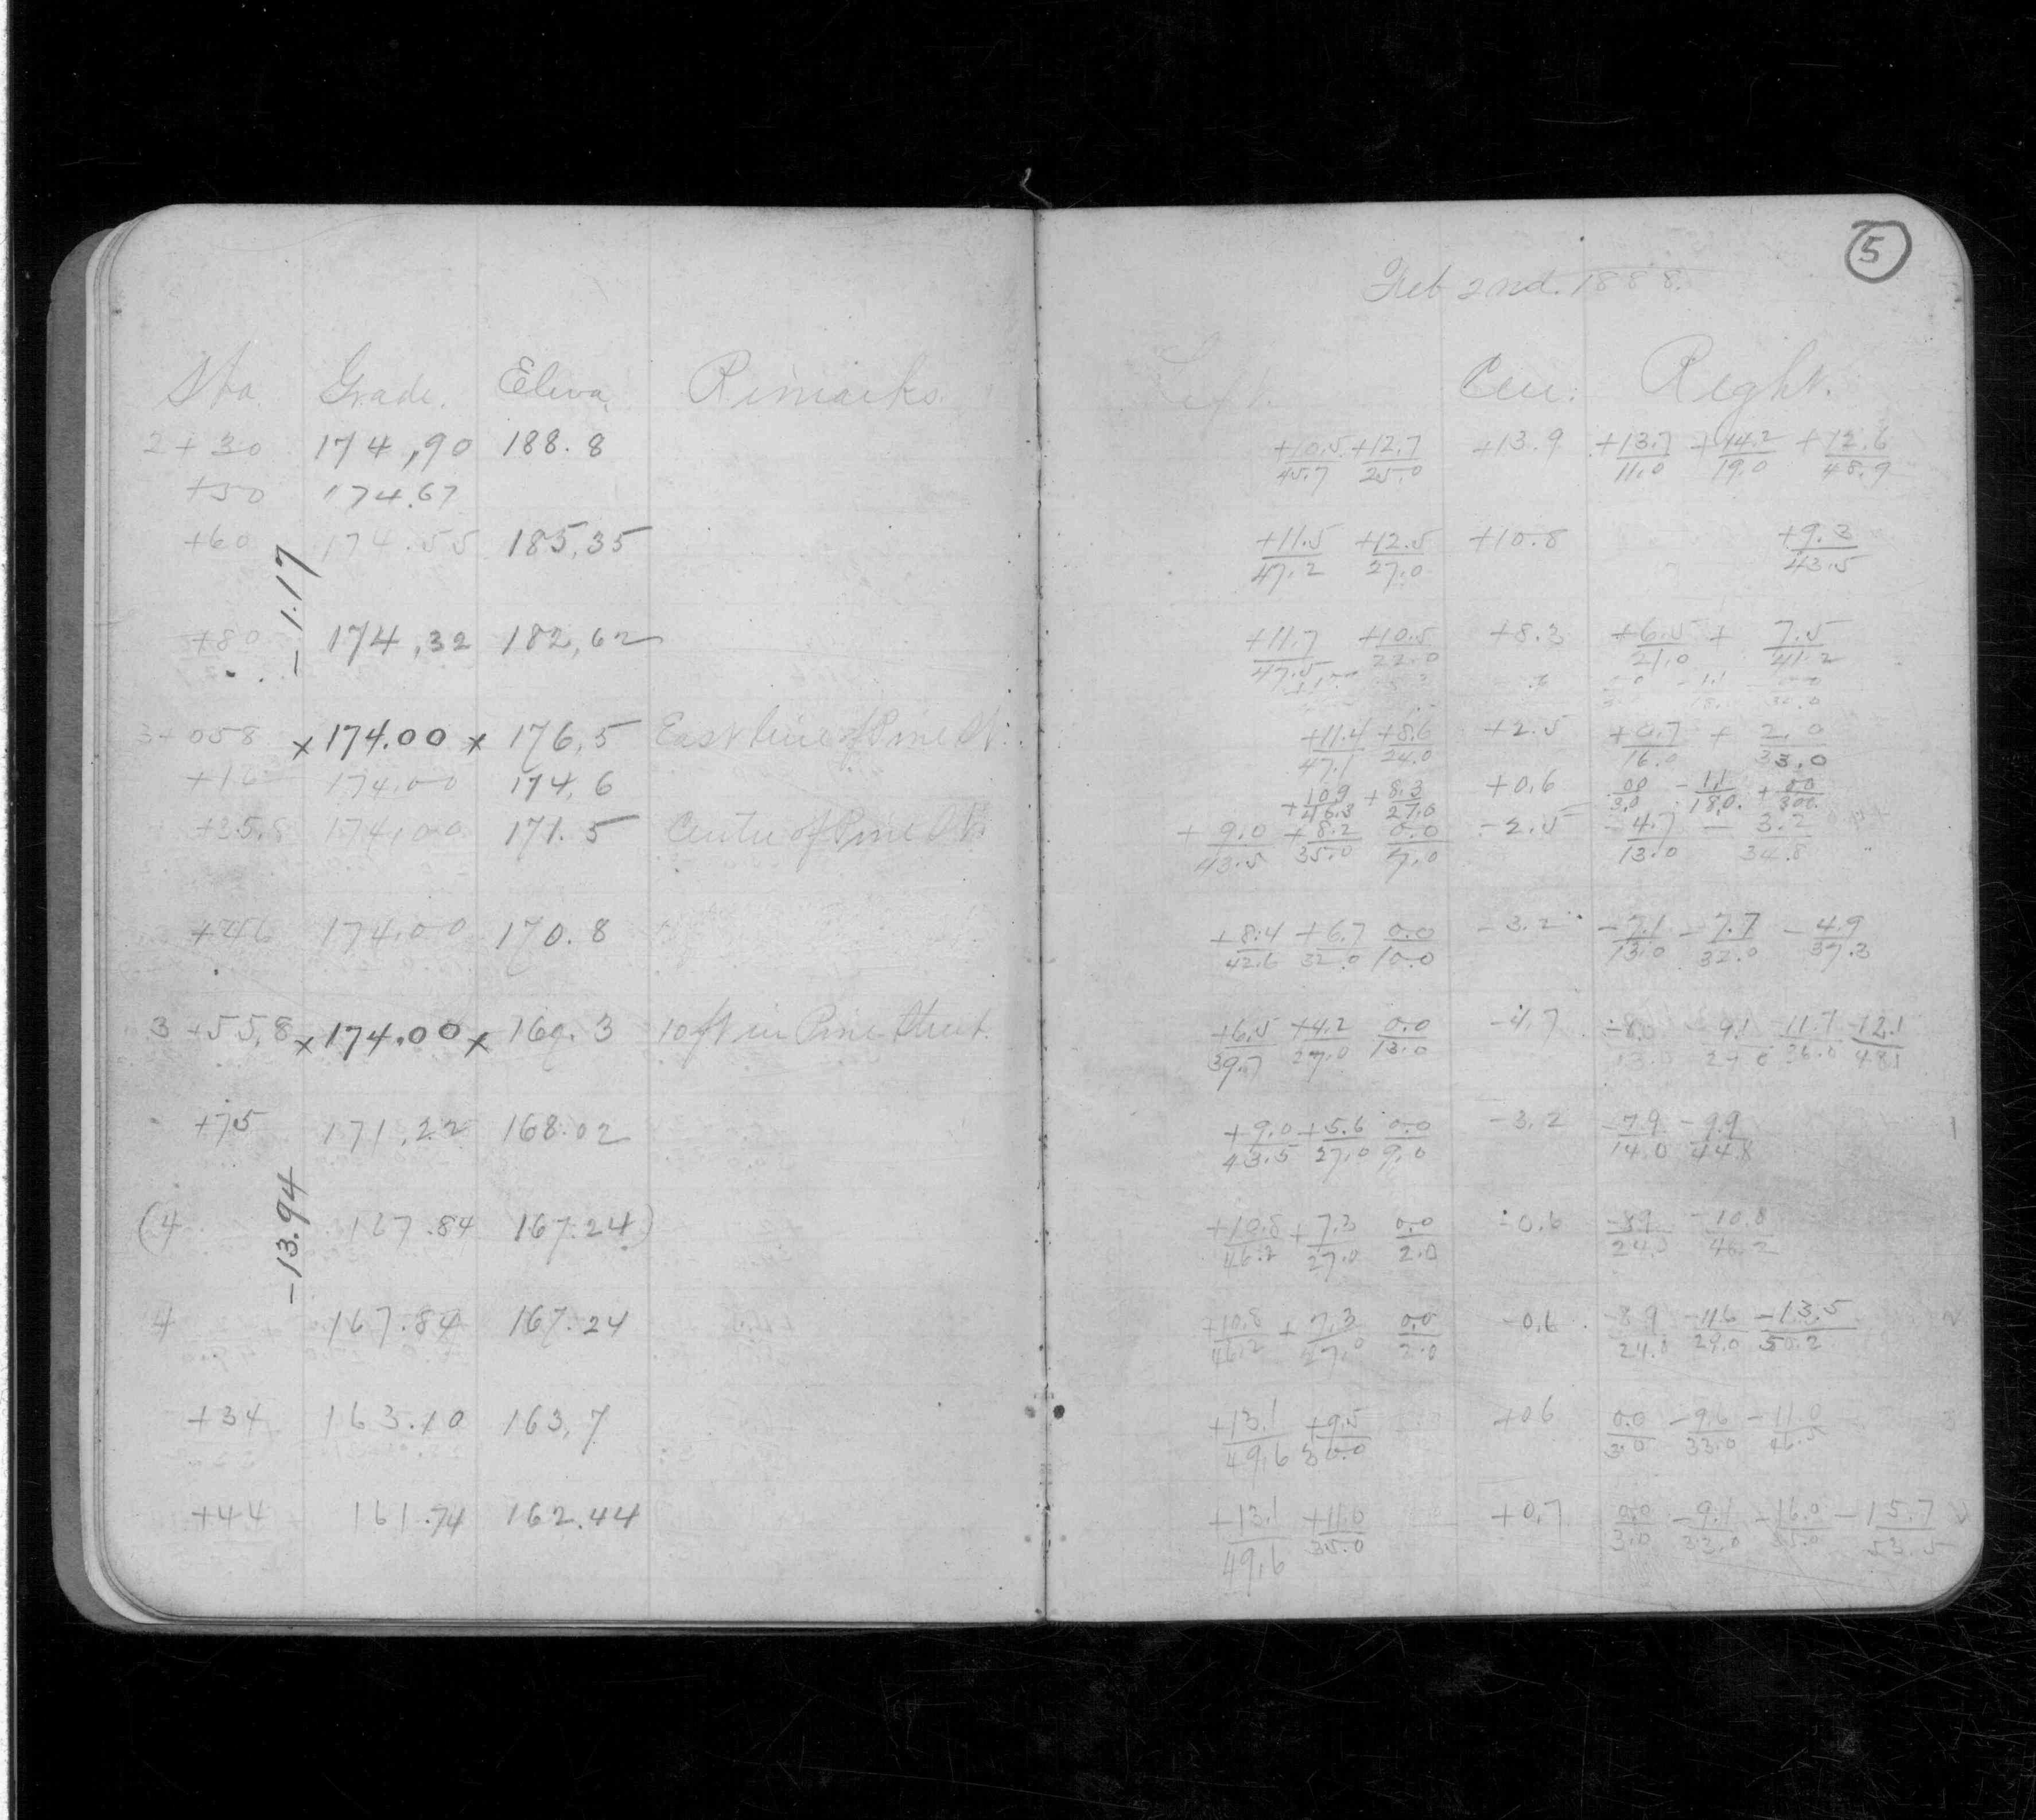 5
Feb 2nd. 1888.
Sta. Grade. Eleva. Remarks. Left. Cen. Right.
2+30 174.90 188.8 +10.5/45.7 +12.7/25.0 +13.9 +13.7/11.0 +14.2/19.0 +12.6/48.9
+50 174.67
+60 174.55 185.35 +11.5/47.2 +12.5/27.0 +10.8 +9.3/43.5
-1.17
+80 174.32 182.62 +11.7/47.5 +10.5/22.0 +8.3 +6.5/21.0 + 7.5/41.2
3+058 x 174.00 x 176.5 East line of Pine St. +11.4/47.1 +8.6/24.0 +2.5 +0.7/16.0 + 2.0/33.0
+10 174.00 174.6 +10.9/46.3 +8.3/27.0 +0.6 00/3.0 -1.1/18.0 +0.0/30.0
+35.8 174.00 171.5 Centre of Pine St. +9.0/43.5 +8.2/35.0 0.0/7.0 -2.5 -4.7/13.0 - 3.2/34.8
+46 174.00 170.8 +8.4/42.6 +6.7/32.0 0.0/10.0 -3.2 -7.1/13.0 -7.7/32.0 -4.9/37.3
3+55.8 x 174.00 x 169.3 10 ft in Pine Street. +6.5/39.7 +4.2/27.0 0.0/13.0 -4.7 -8.0/13.0 -9.1/27.0 -11.7/36.0 -12.1/48.1
+75 171.22 168.02 +9.0/43.5 +5.6/27.0 0.0/9.0 -3.2 -7.9/14.0 -9.9/44.8
-13.94
(4 167.84 167.24) +10.8/46.2 +7.3/27.0 0.0/2.0 -0.6 -8.9/24.0 -10.8/46.2
4 167.84 167.24 +10.8/46.2 +7.3/27.0 0.0/2.0 -0.6 -8.9/24.0 -11.6/29.0 -13.5/50.2
+34 163.10 163.7 +13.1/49.6 +9.5/30.0 +0.6 0.0/3.0 -9.6/33.0 -11.0/46.5
+44 161.74 162.44 +13.1/49.6 +11.0/35.0 +0.7 0.0/3.0 -9.1/33.0 -16.0 -15.7/53.5